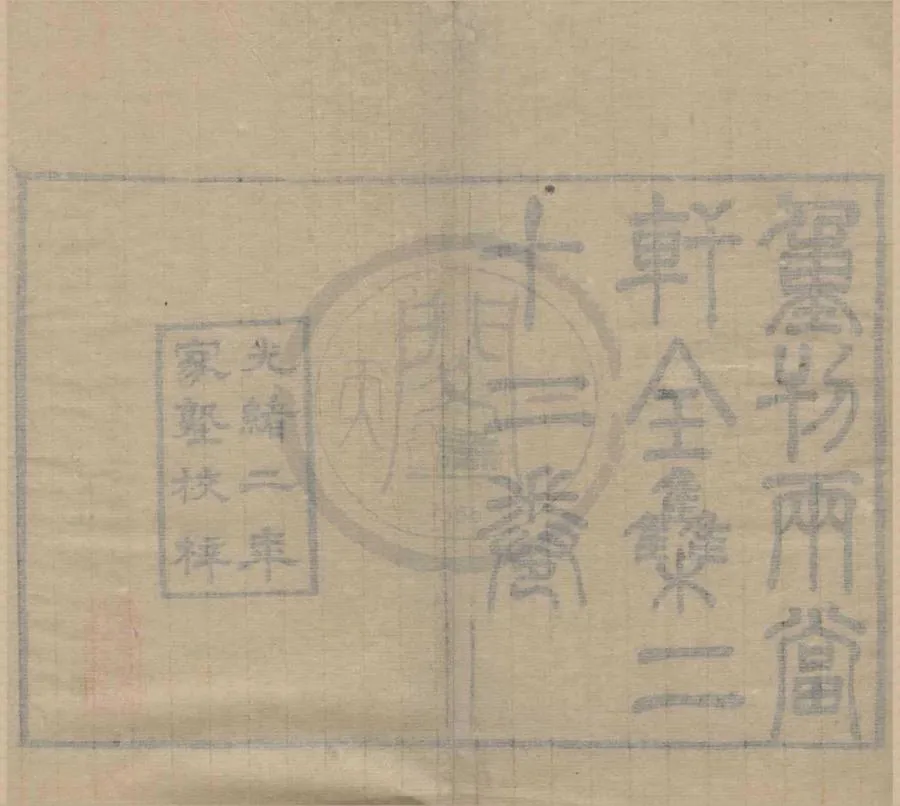 重刊兩當
軒全雧二
十二卷
光緒二年
家塾校梓